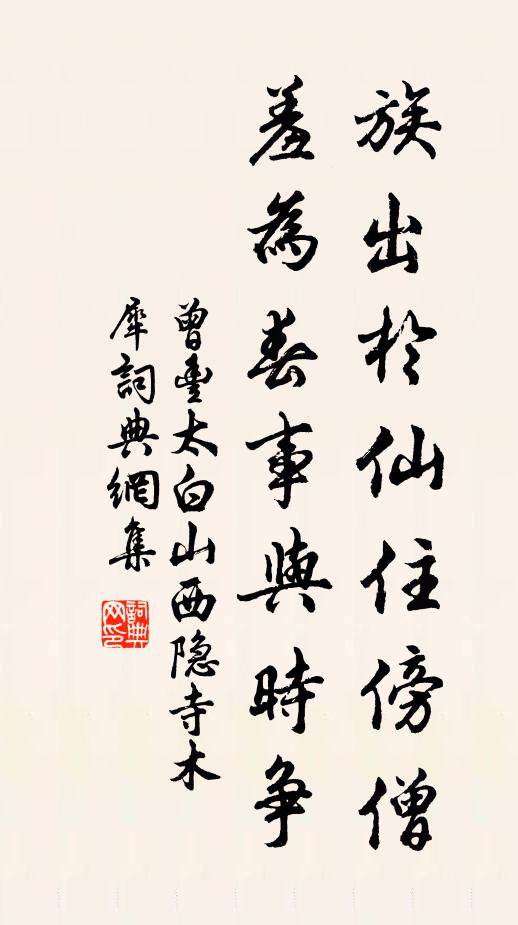 族出於仙住傍僧
羞為春事與時争
曾豊太白山西隐寺木
犀詞典網集
詞典
网印